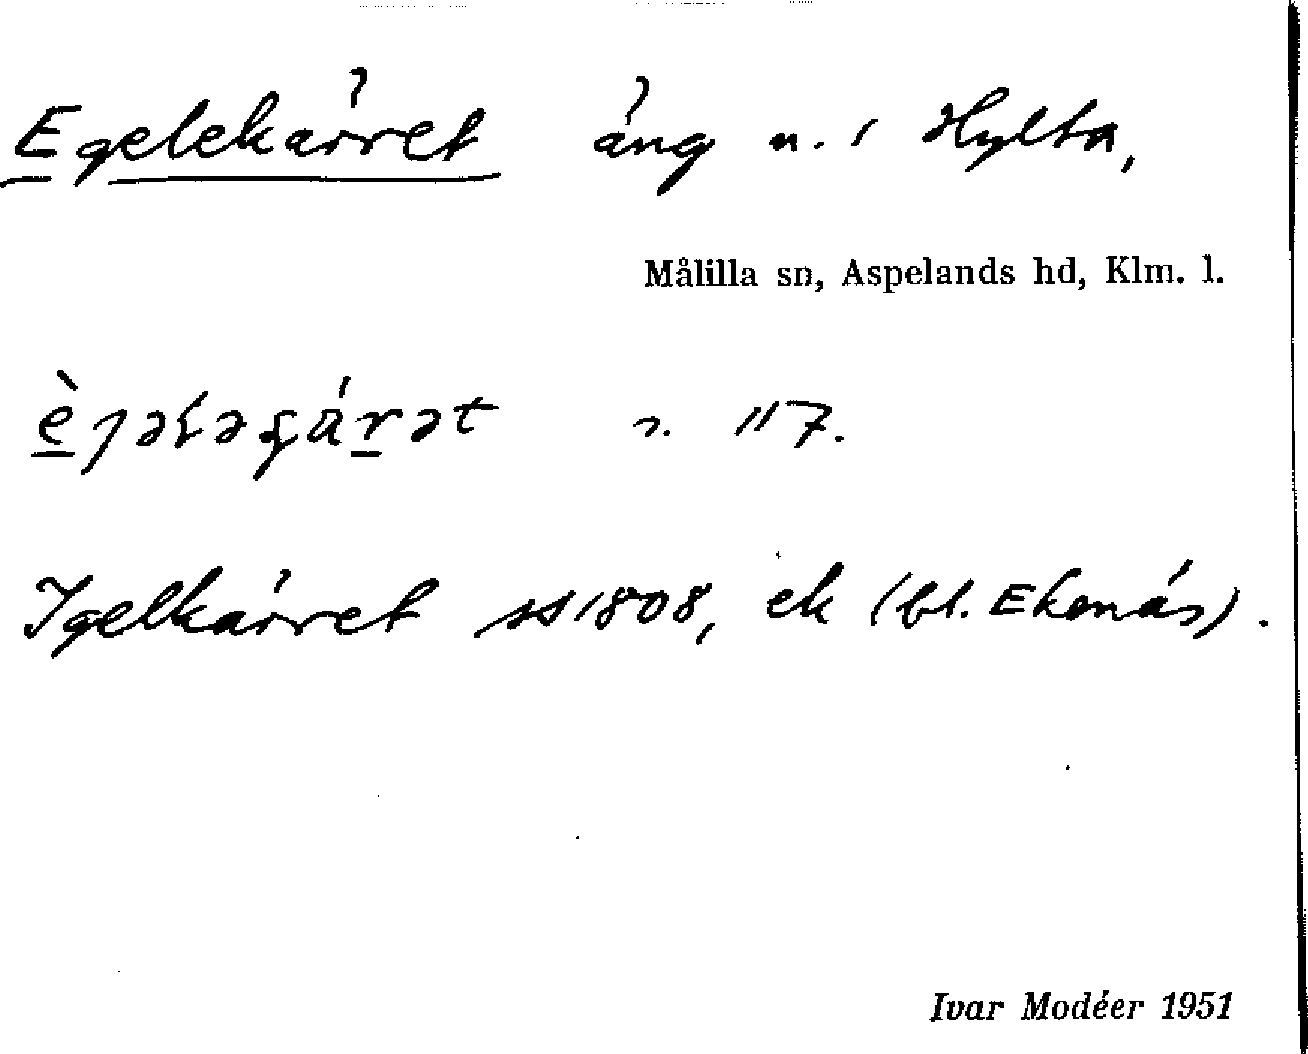 Egelekärret äng n. i Hylta,
Målilla sn, Aspelands hd, Klm. l.
n. 117.
Igelkärret ss 1808, ek (bl. Ekenäs).
Ivar Modéer 1951